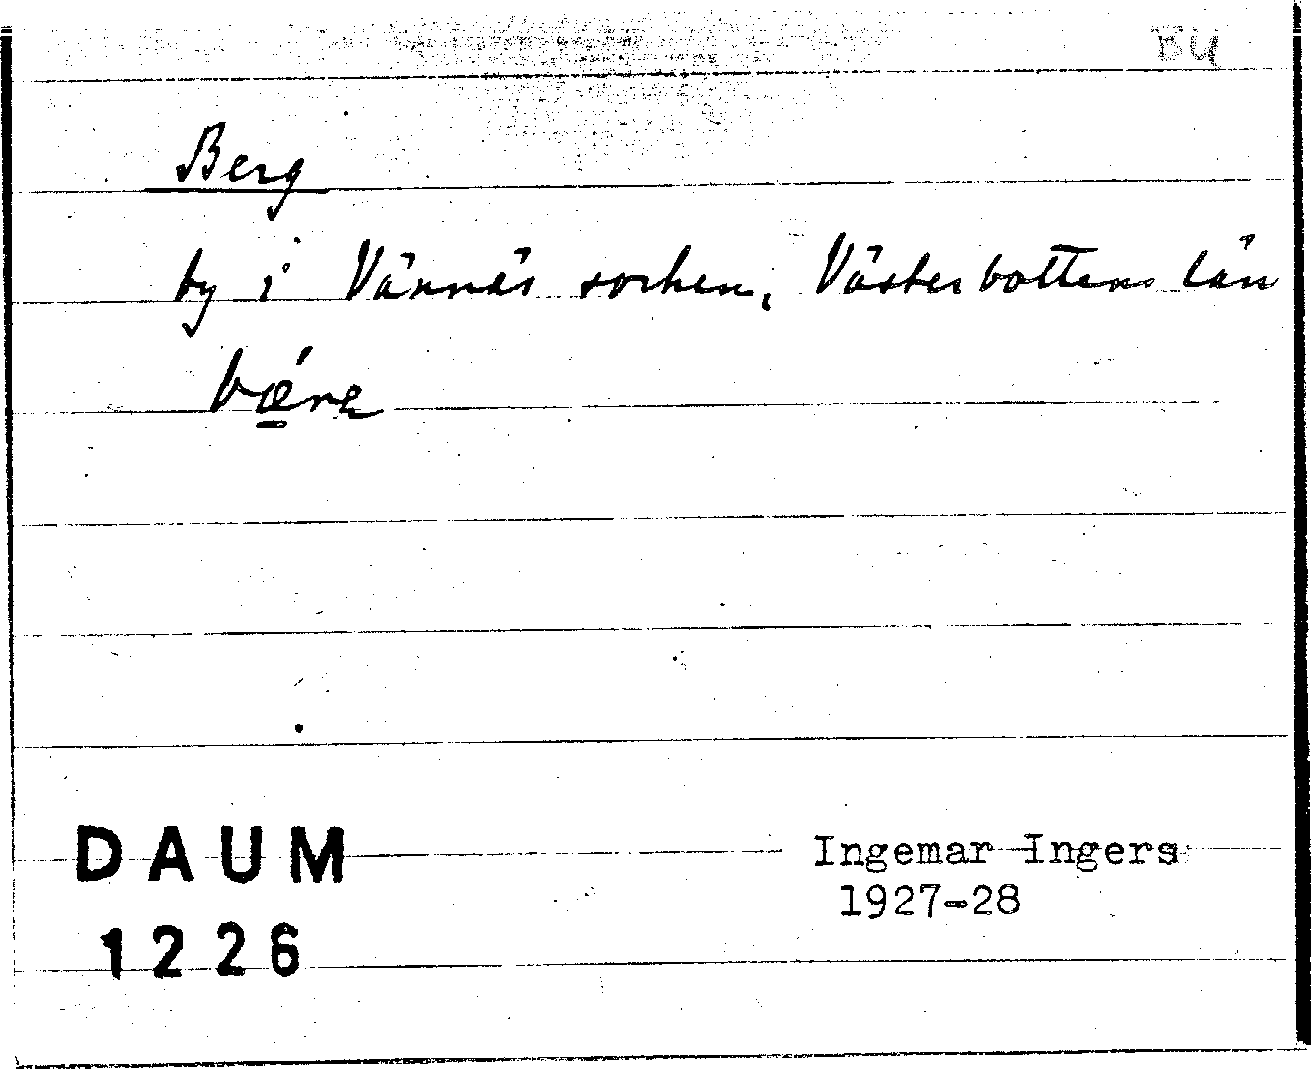 BY
Berg
by i Vännäs socken, Västerbottens län
DAUM
1226
Ingemar Ingers
1927-28